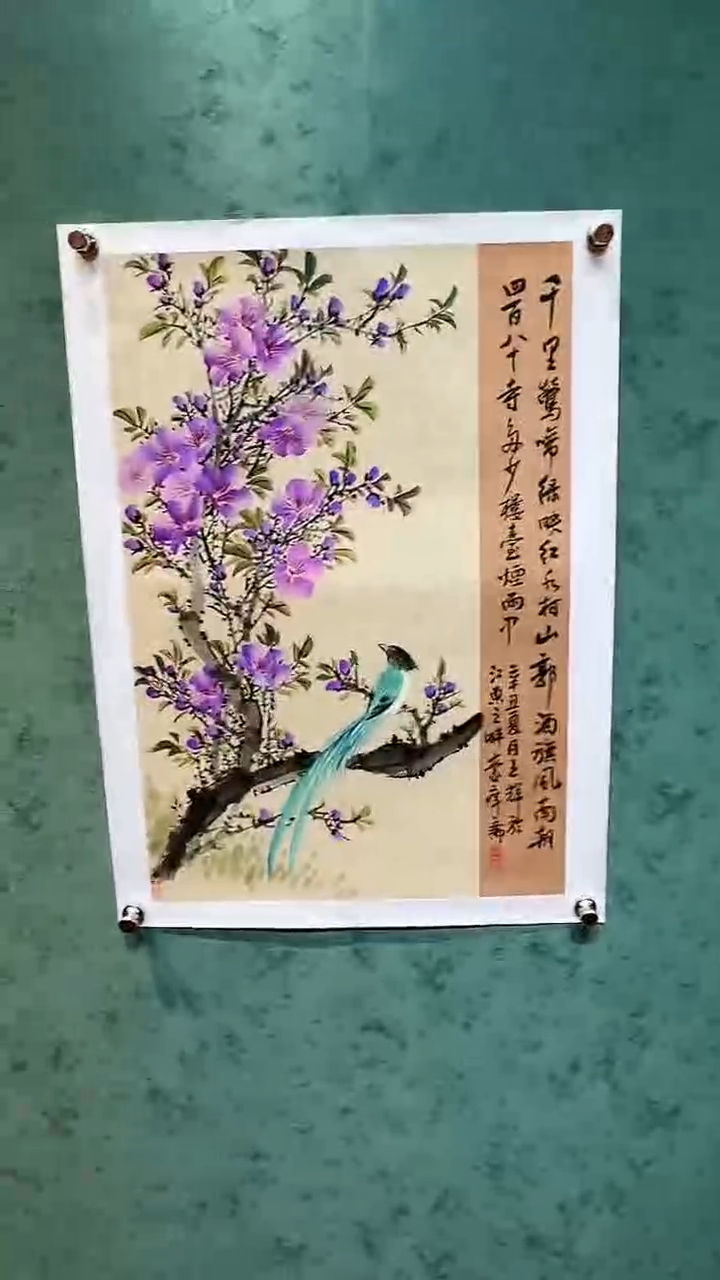 千里莺啼绿映红水村山郭酒旗风南朝
四百八十寺多少楼臺煙雨中
二千丑夏月王辉於
江東之畔